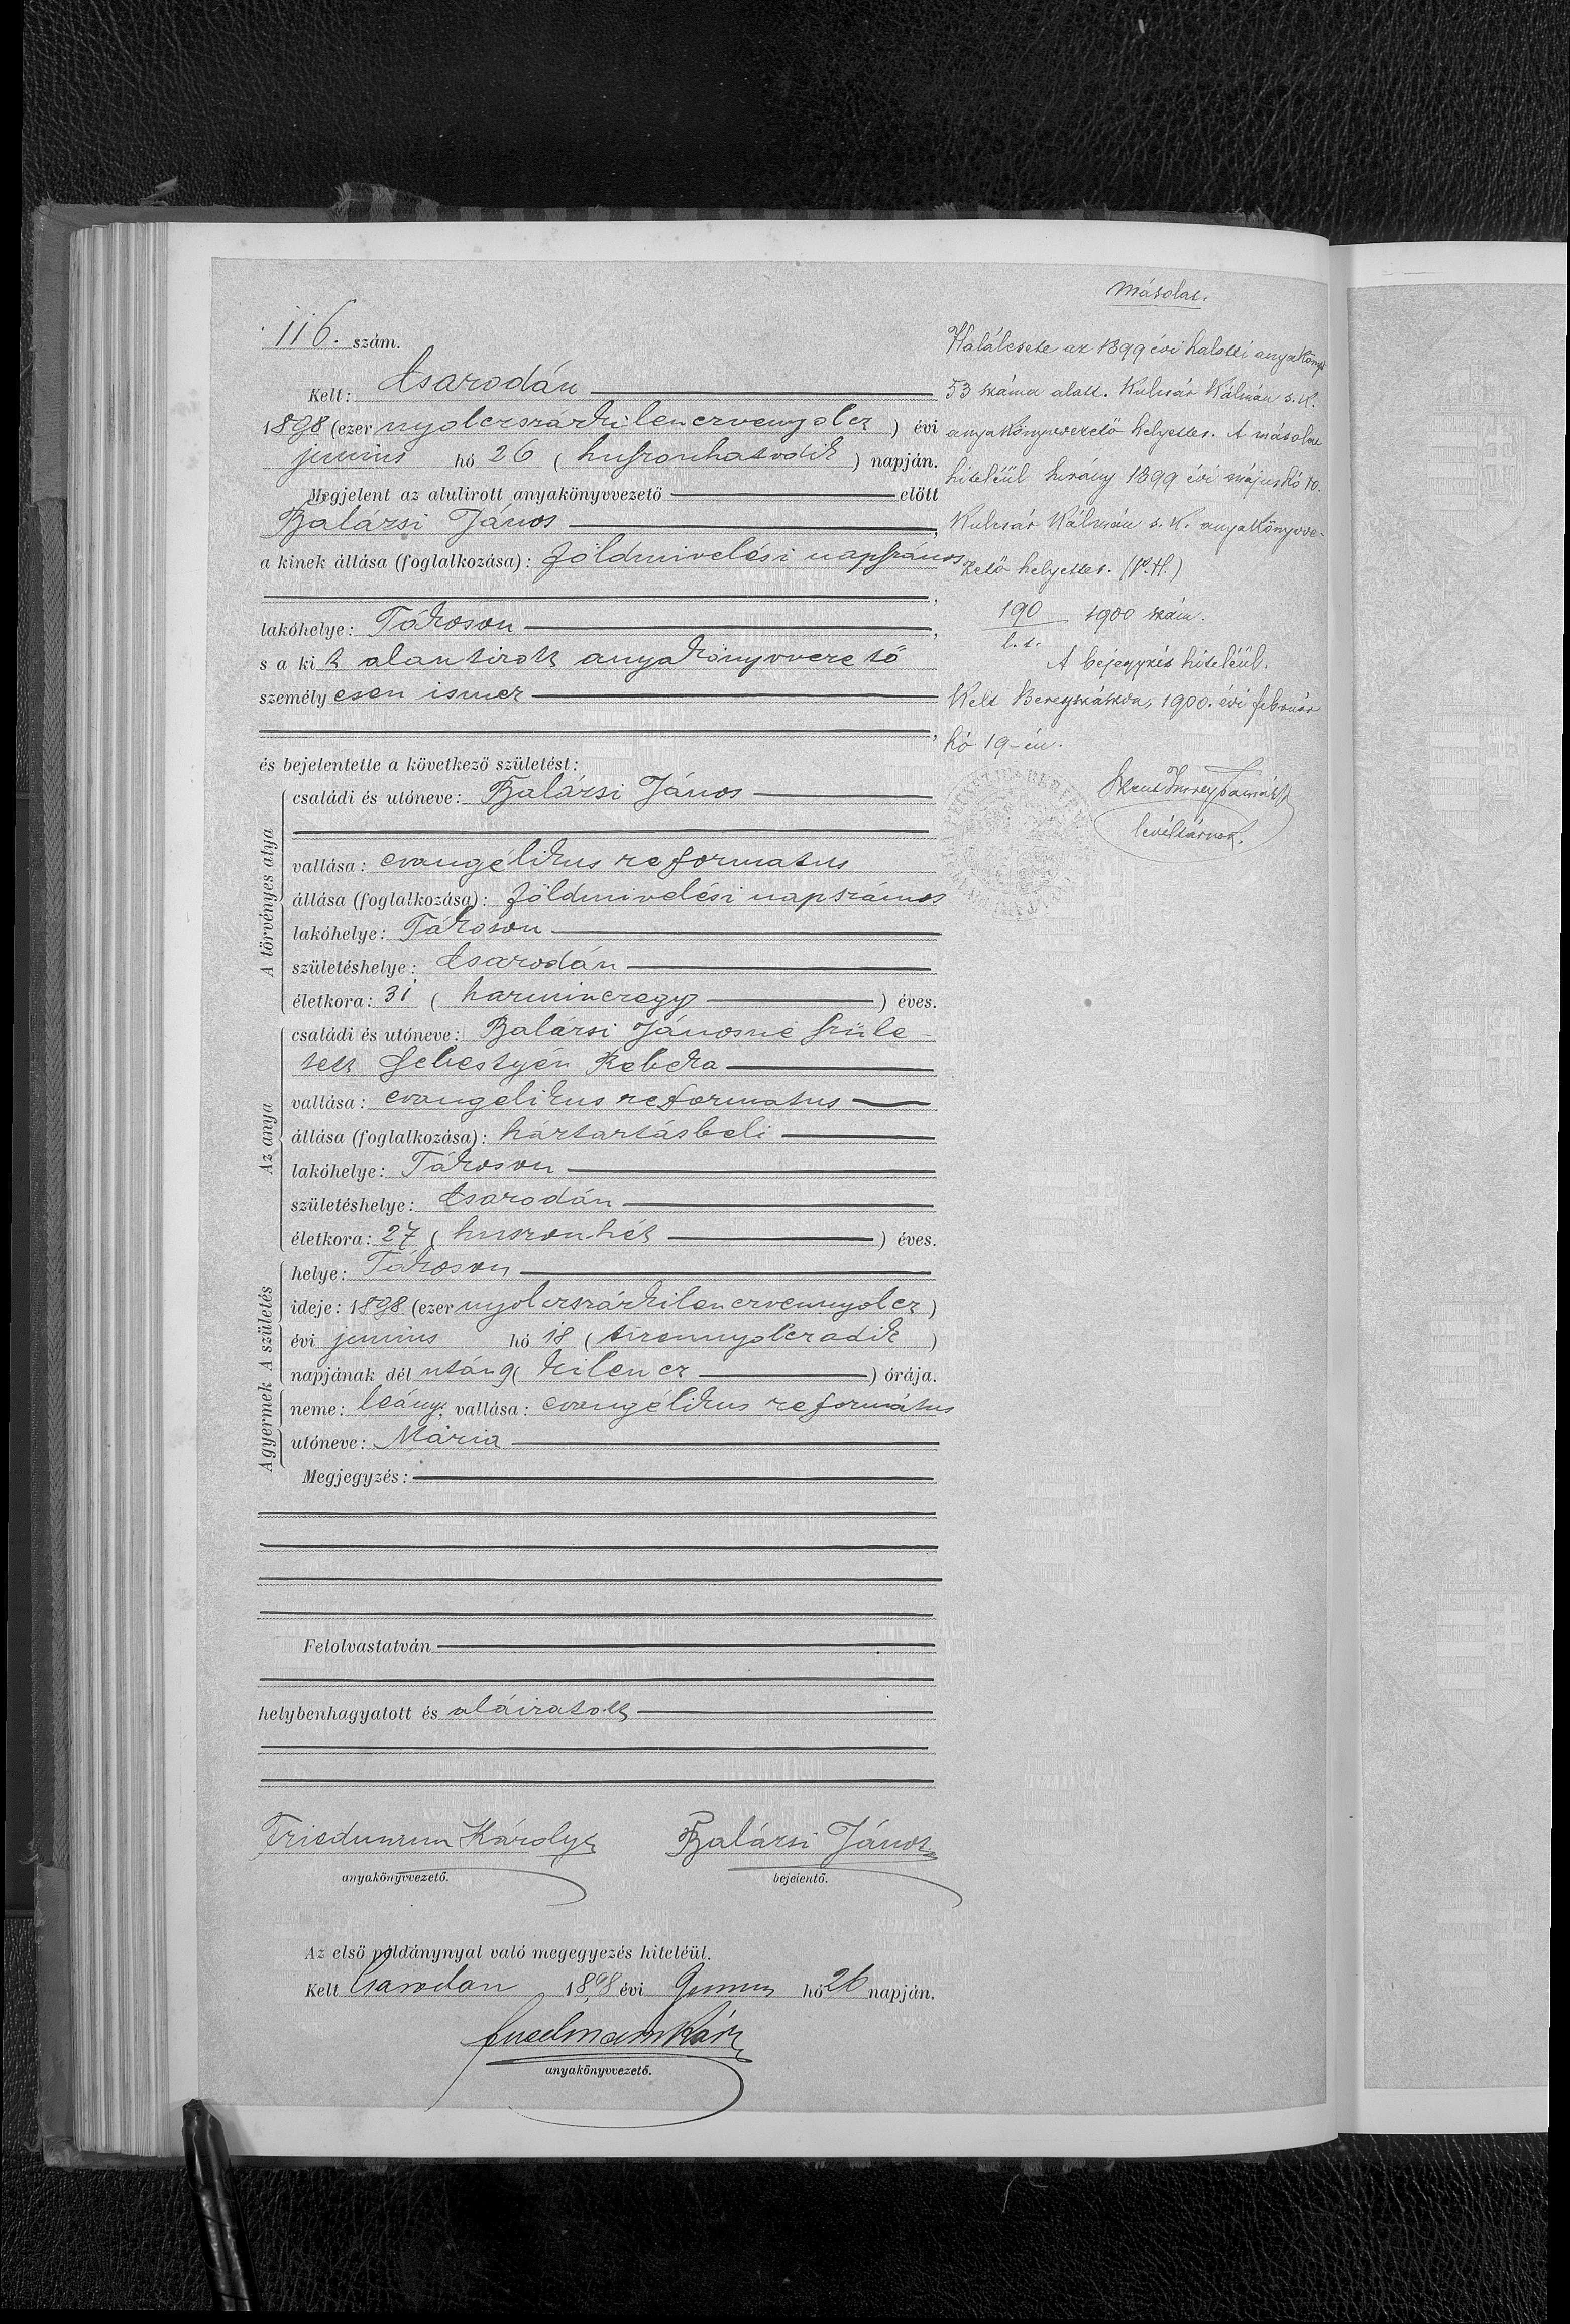 116. szám.
Kelt: Csarodán
1898 (ezer nyolczszázkilenczvennyolcz) évi
junius hó 26 (huszonhatodik) napján.
Megjelent az alulirott anyakönyvvezető előtt
Balázsi János,
a kinek állása (foglalkozása): földmivelési napszámos,
lakóhelye: Tákoson,
s a kit alantirott anyakönyvvezető
személyesen ismer,
és bejelentette a következő születést:
A törvényes atya
családi és utóneve: Balázsi János
vallása: evangélikus reformatus
állása (foglalkozása): földmivelési napszámos
lakóhelye: Tákoson
születéshelye: Csarodán
életkora: 31 (harminczegy) éves.
Az anya
családi és utóneve: Balázsi Jánosné szüle
tett Sebestyén Rebeka
vallása: evangelikus reformatus
állása (foglalkozása): háztartásbeli
lakóhelye: Tákoson
születéshelye: Csarodán
életkora: 27 (huszonhét) éves.
A születés
helye: Tákoson
ideje: 1898 (ezer nyolczszázkilenczvennyolcz)
évi junius hó 18 (tizennyolczadik)
napjának dél után 9 (kilencz) órája.
A gyermek
neme: leány, vallása: evangélikus református
utóneve: Mária
Megjegyzés:
Felolvastatván
helybenhagyatott és aláiratott
Friedmann Károly
anyakönyvvezető.
Balázsi János
bejelentő.
Az első példánynyal való megegyezés hiteléül.
Kelt Csarodan 1898 évi Junius hó 26 napján.
anyakönyvvezető.
Másolat.
Halálesete az 1899 évi halotti anyakönyv
53 száma alatt. Kulcsár Kálmán s. k.
anyakönyvvezető helyettes. A másolat
hiteléül Surány 1899 évi május hó 10.
Kulcsár Kálmán s. k. anyakönyvve-
zető helyettes. (P. H.)
190 1900 szám.
l. t.
A bejegyzés hiteléül.
Kelt Beregszászon, 1900. évi február
hó 19-én.
levéltárnok.